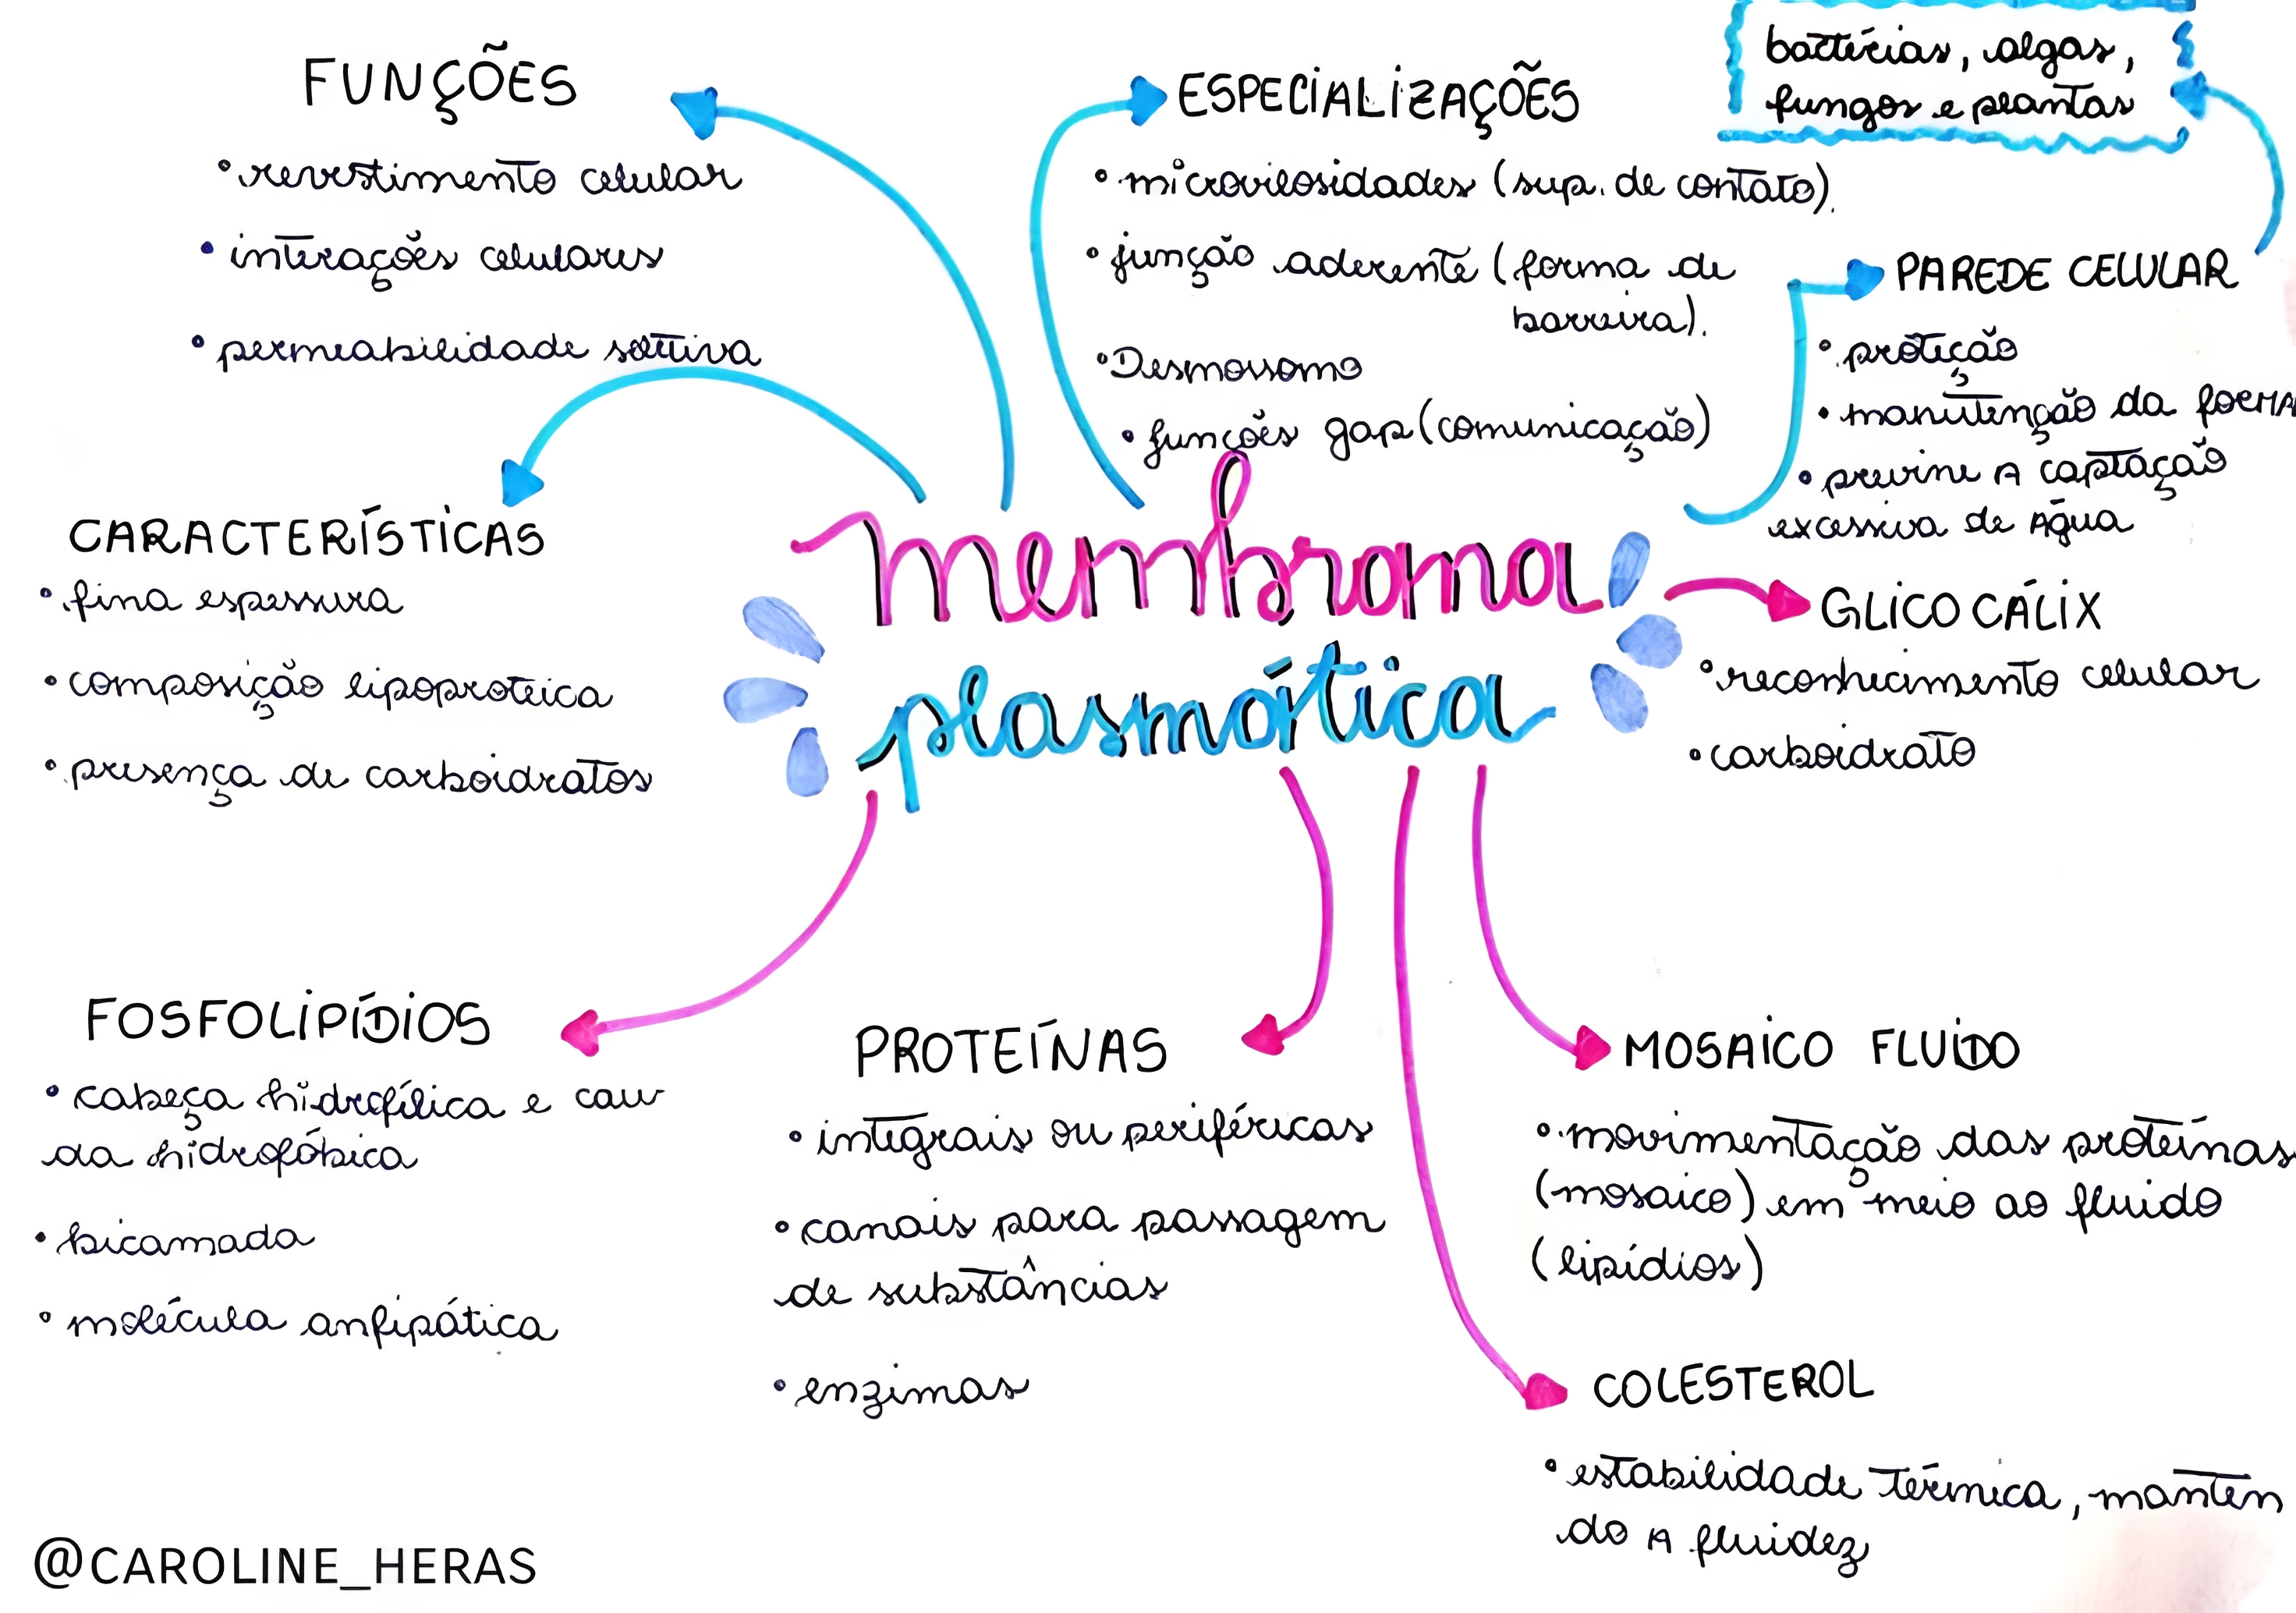 FUNÇÕES
• revestimento celular
• interações celulares
• permeabilidade seletiva
ESPECIALIZAÇÕES
• microvilosidades (sup. de contato).
• junção aderente (forma de
barreira).
• Desmossomo
• junções gap (comunicação)
bactérias, algas,
fungos e plantas
PAREDE CELULAR
• proteção
• manutenção da forma
• previne A captação
excessiva de água
CARACTERÍSTICAS
• fina espessura
• composição lipoproteica
• presença de carboidratos
membrana
plasmática
GLICOCÁLIX
• reconhecimento celular
• carboidrato
FOSFOLIPÍDIOS
• cabeça hidrofílica e cau
da hidrofóbica
• bicamada
• molécula anfipática
PROTEÍNAS
• integrais ou periféricas
• canais para passagem
de substâncias
• enzimas
MOSAICO FLUIDO
• movimentação das proteínas
(mosaico) em meio ao fluido
(lipídios)
COLESTEROL
• estabilidade térmica, manten
do A fluidez
@CAROLINE_HERAS